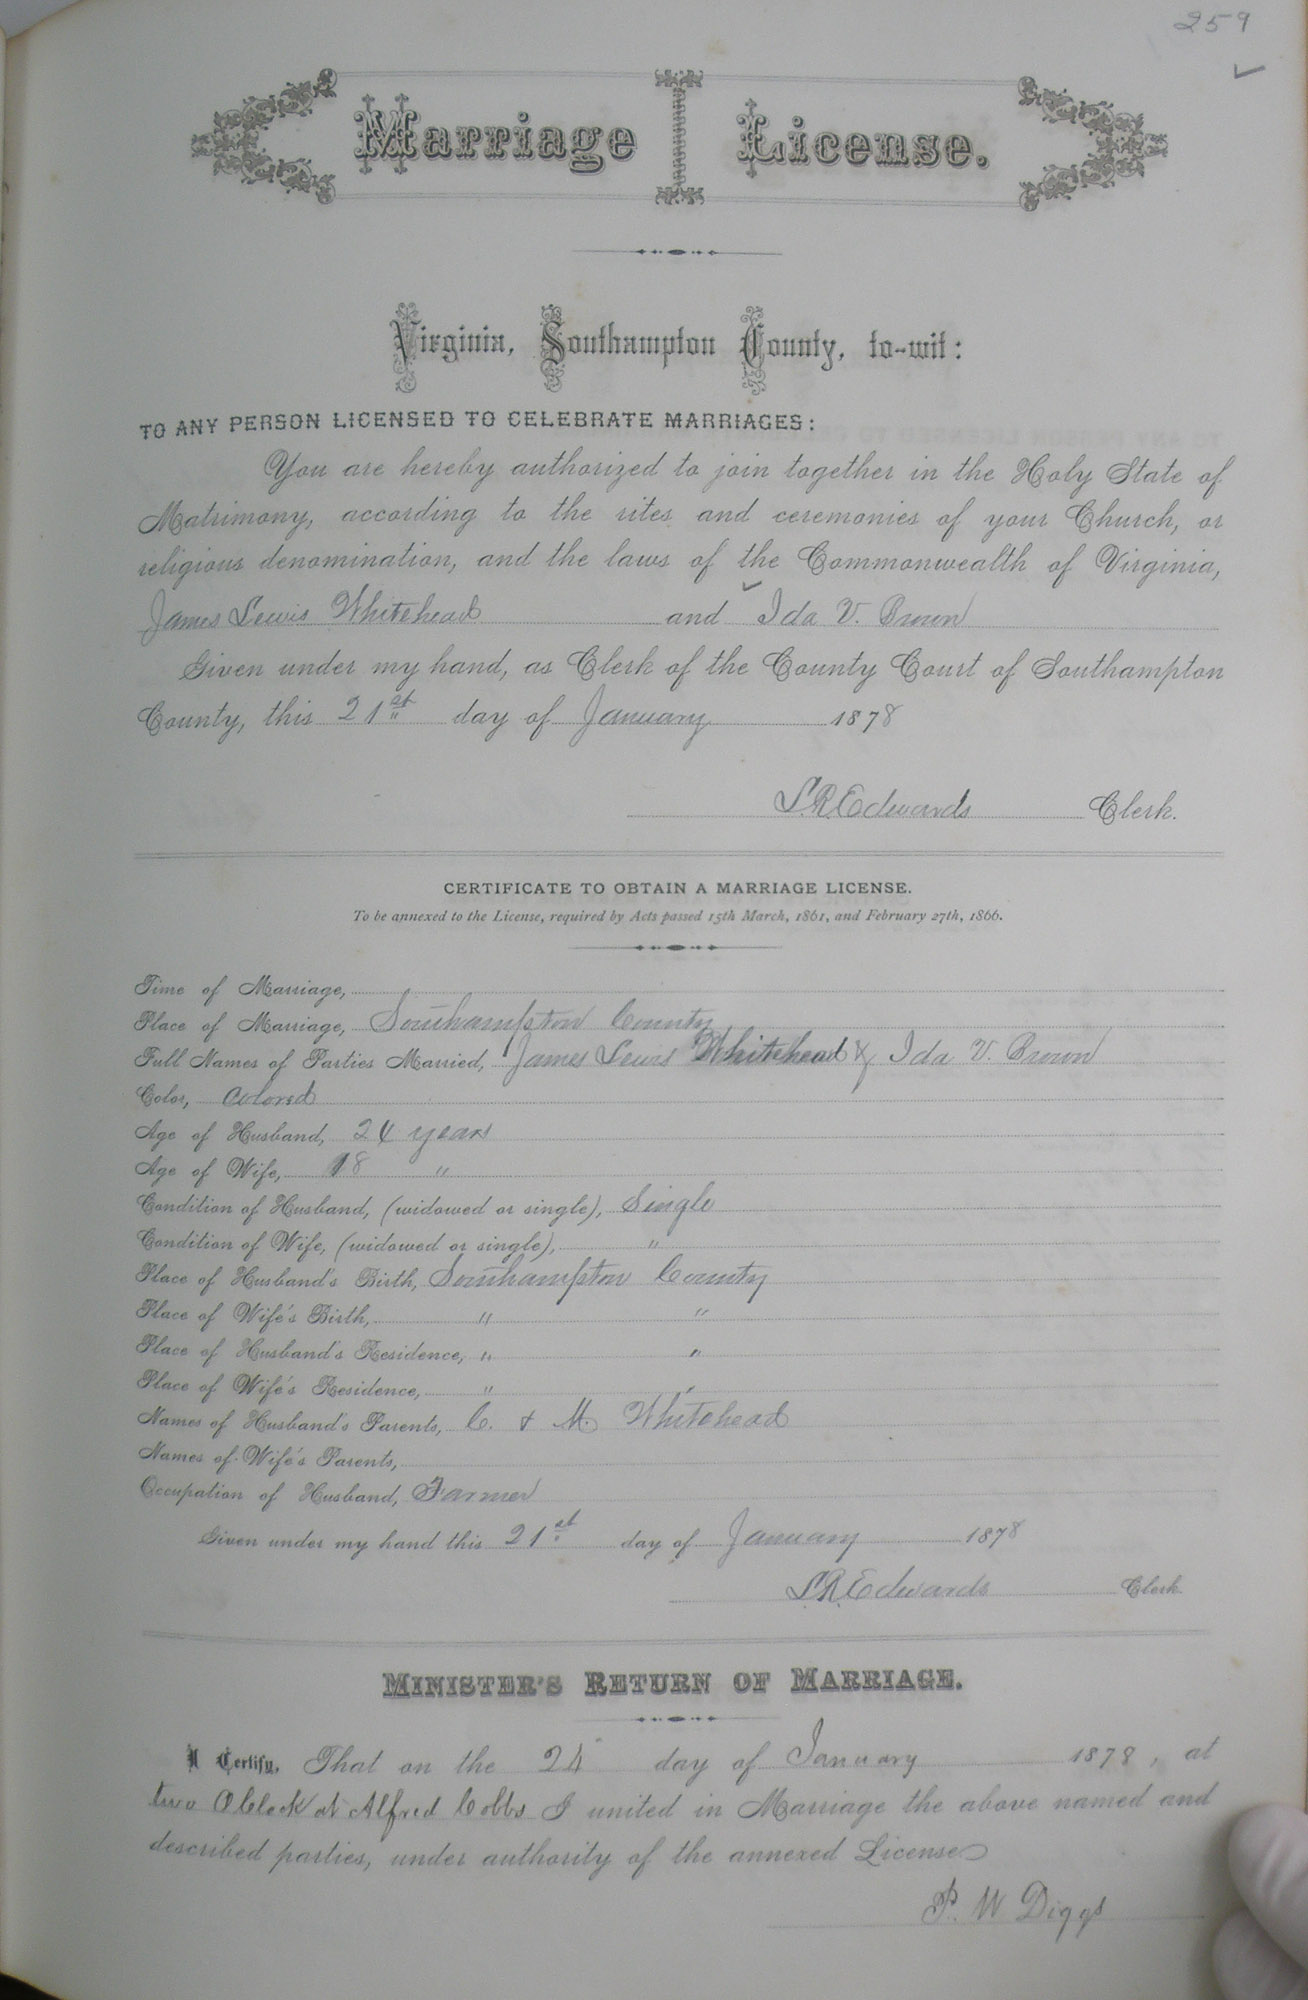 259
Marriage License.
Virginia, Southampton County, to-wit:
TO ANY PERSON LICENSED TO CELEBRATE MARRIAGES:
You are hereby authorized to join together in the Holy State of
Matrimony, according to the rites and ceremonies of your Church, or
religious denomination, and the laws of the Commonwealth of Virginia,
James Lewis Whitehead and Ida V. Brown
Given under my hand, as Clerk of the County Court of Southampton
County, this 21st day of January 1878
L.R. Edwards Clerk.
CERTIFICATE TO OBTAIN A MARRIAGE LICENSE.
To be annexed to the License, required by Acts passed 15th March, 1861, and February 27th, 1866.
Time of Marriage,
Place of Marriage, Southampton County
Full Names of Parties Married, James Lewis Whitehead & Ida V. Brown
Color, Colored
Age of Husband, 24 years
Age of Wife, 18 "
Condition of Husband, (widowed or single), Single
Condition of Wife, (widowed or single), "
Place of Husband's Birth, Southampton County
Place of Wife's Birth, " "
Place of Husband's Residence, " "
Place of Wife's Residence, " "
Names of Husband's Parents, C. & M. Whitehead
Names of Wife's Parents,
Occupation of Husband, Farmer
Given under my hand this 21st day of January 1878
L.R. Edwards Clerk
MINISTER'S RETURN OF MARRIAGE.
I Certify, That on the 24 day of January 1878, at
two OClock at Alfred Cobbs I united in Marriage the above named and
described parties, under authority of the annexed License
P. W Diggs